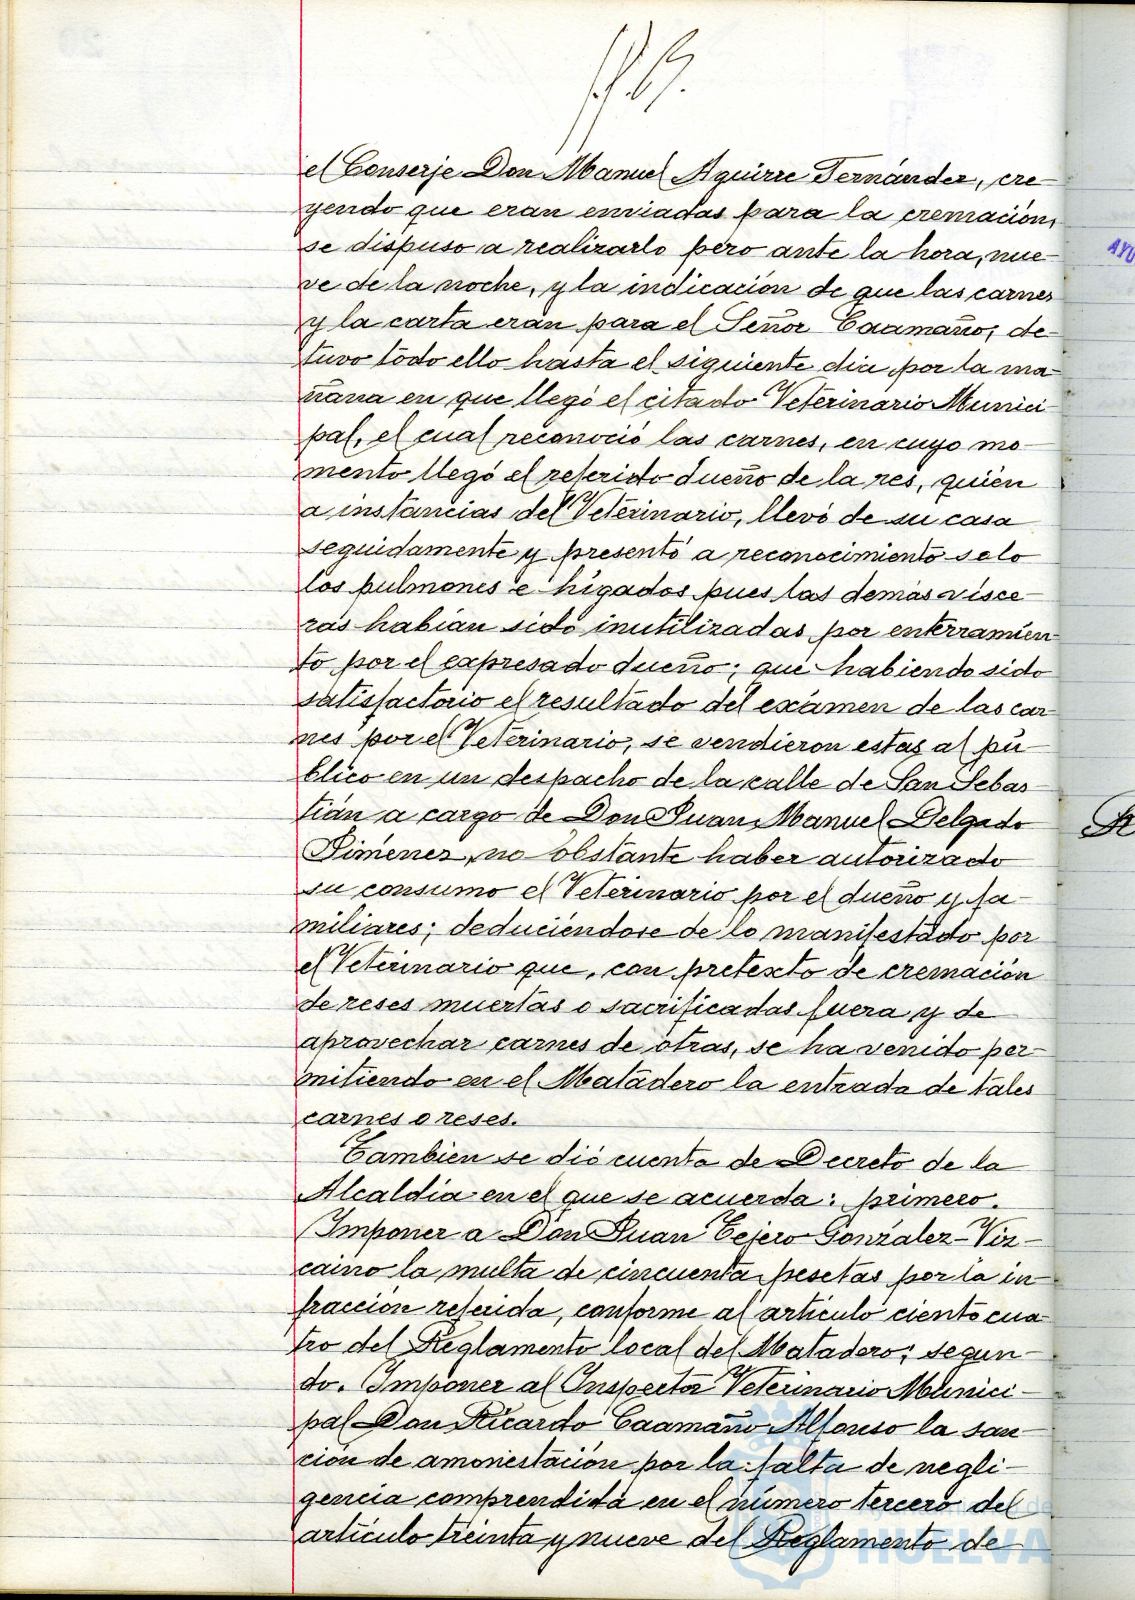 el Conserje Don Manuel Aguirre Fernández, cre-
yendo que eran enviadas para la cremación,
se dispuso a realizarlo pero ante la hora, nue-
ve de la noche, y la indicación de que las carnes
y la carta eran para el Señor Caamaño, de-
tuvo todo ello hasta el siguiente dia por la ma-
ñana en que llegó el citado Veterinario Munici-
pal, el cual reconoció las carnes, en cuyo mo-
mento llegó el referido dueño de la res, quién
a instancias del Veterinario, llevó de su casa
seguidamente y presentó a reconocimiento solo
los pulmones e higados pues las demás visce-
ras habían sido inutilizadas por enterramien-
to por el expresado dueño; que habiendo sido
satisfactorio el resultado del exámen de las car-
nes por el Veterinario, se vendieron estas al pú-
blico en un despacho de la calle de San Sebas-
tián a cargo de Don Juan Manuel Delgado
Jiménez, no obstante haber autorizado
su consumo el Veterinario por el dueño y fa-
miliares; deduciéndose de lo manifestado por
el Veterinario que, con pretexto de cremación
de reses muertas o sacrificadas fuera y de
aprovechar carnes de otras, se ha venido per-
mitiendo en el Matadero la entrada de tales
carnes o reses.
Tambien se dió cuenta de Decreto de la
Alcaldía en el que se acuerda: primero.
Imponer a Don Juan Tejero González-Viz-
caino la multa de cincuenta pesetas por la in-
fracción referida, conforme al artículo ciento cua-
tro del Reglamento local del Matadero; segun-
do. Imponer al Inspector Veterinario Munici-
pal Don Ricardo Caamaño Alfonso la san-
ción de amonestación por la falta de negli-
gencia comprendida en el número tercero del
artículo treinta y nueve del Reglamento de
AYU
Ayuntamiento de
HUELVA